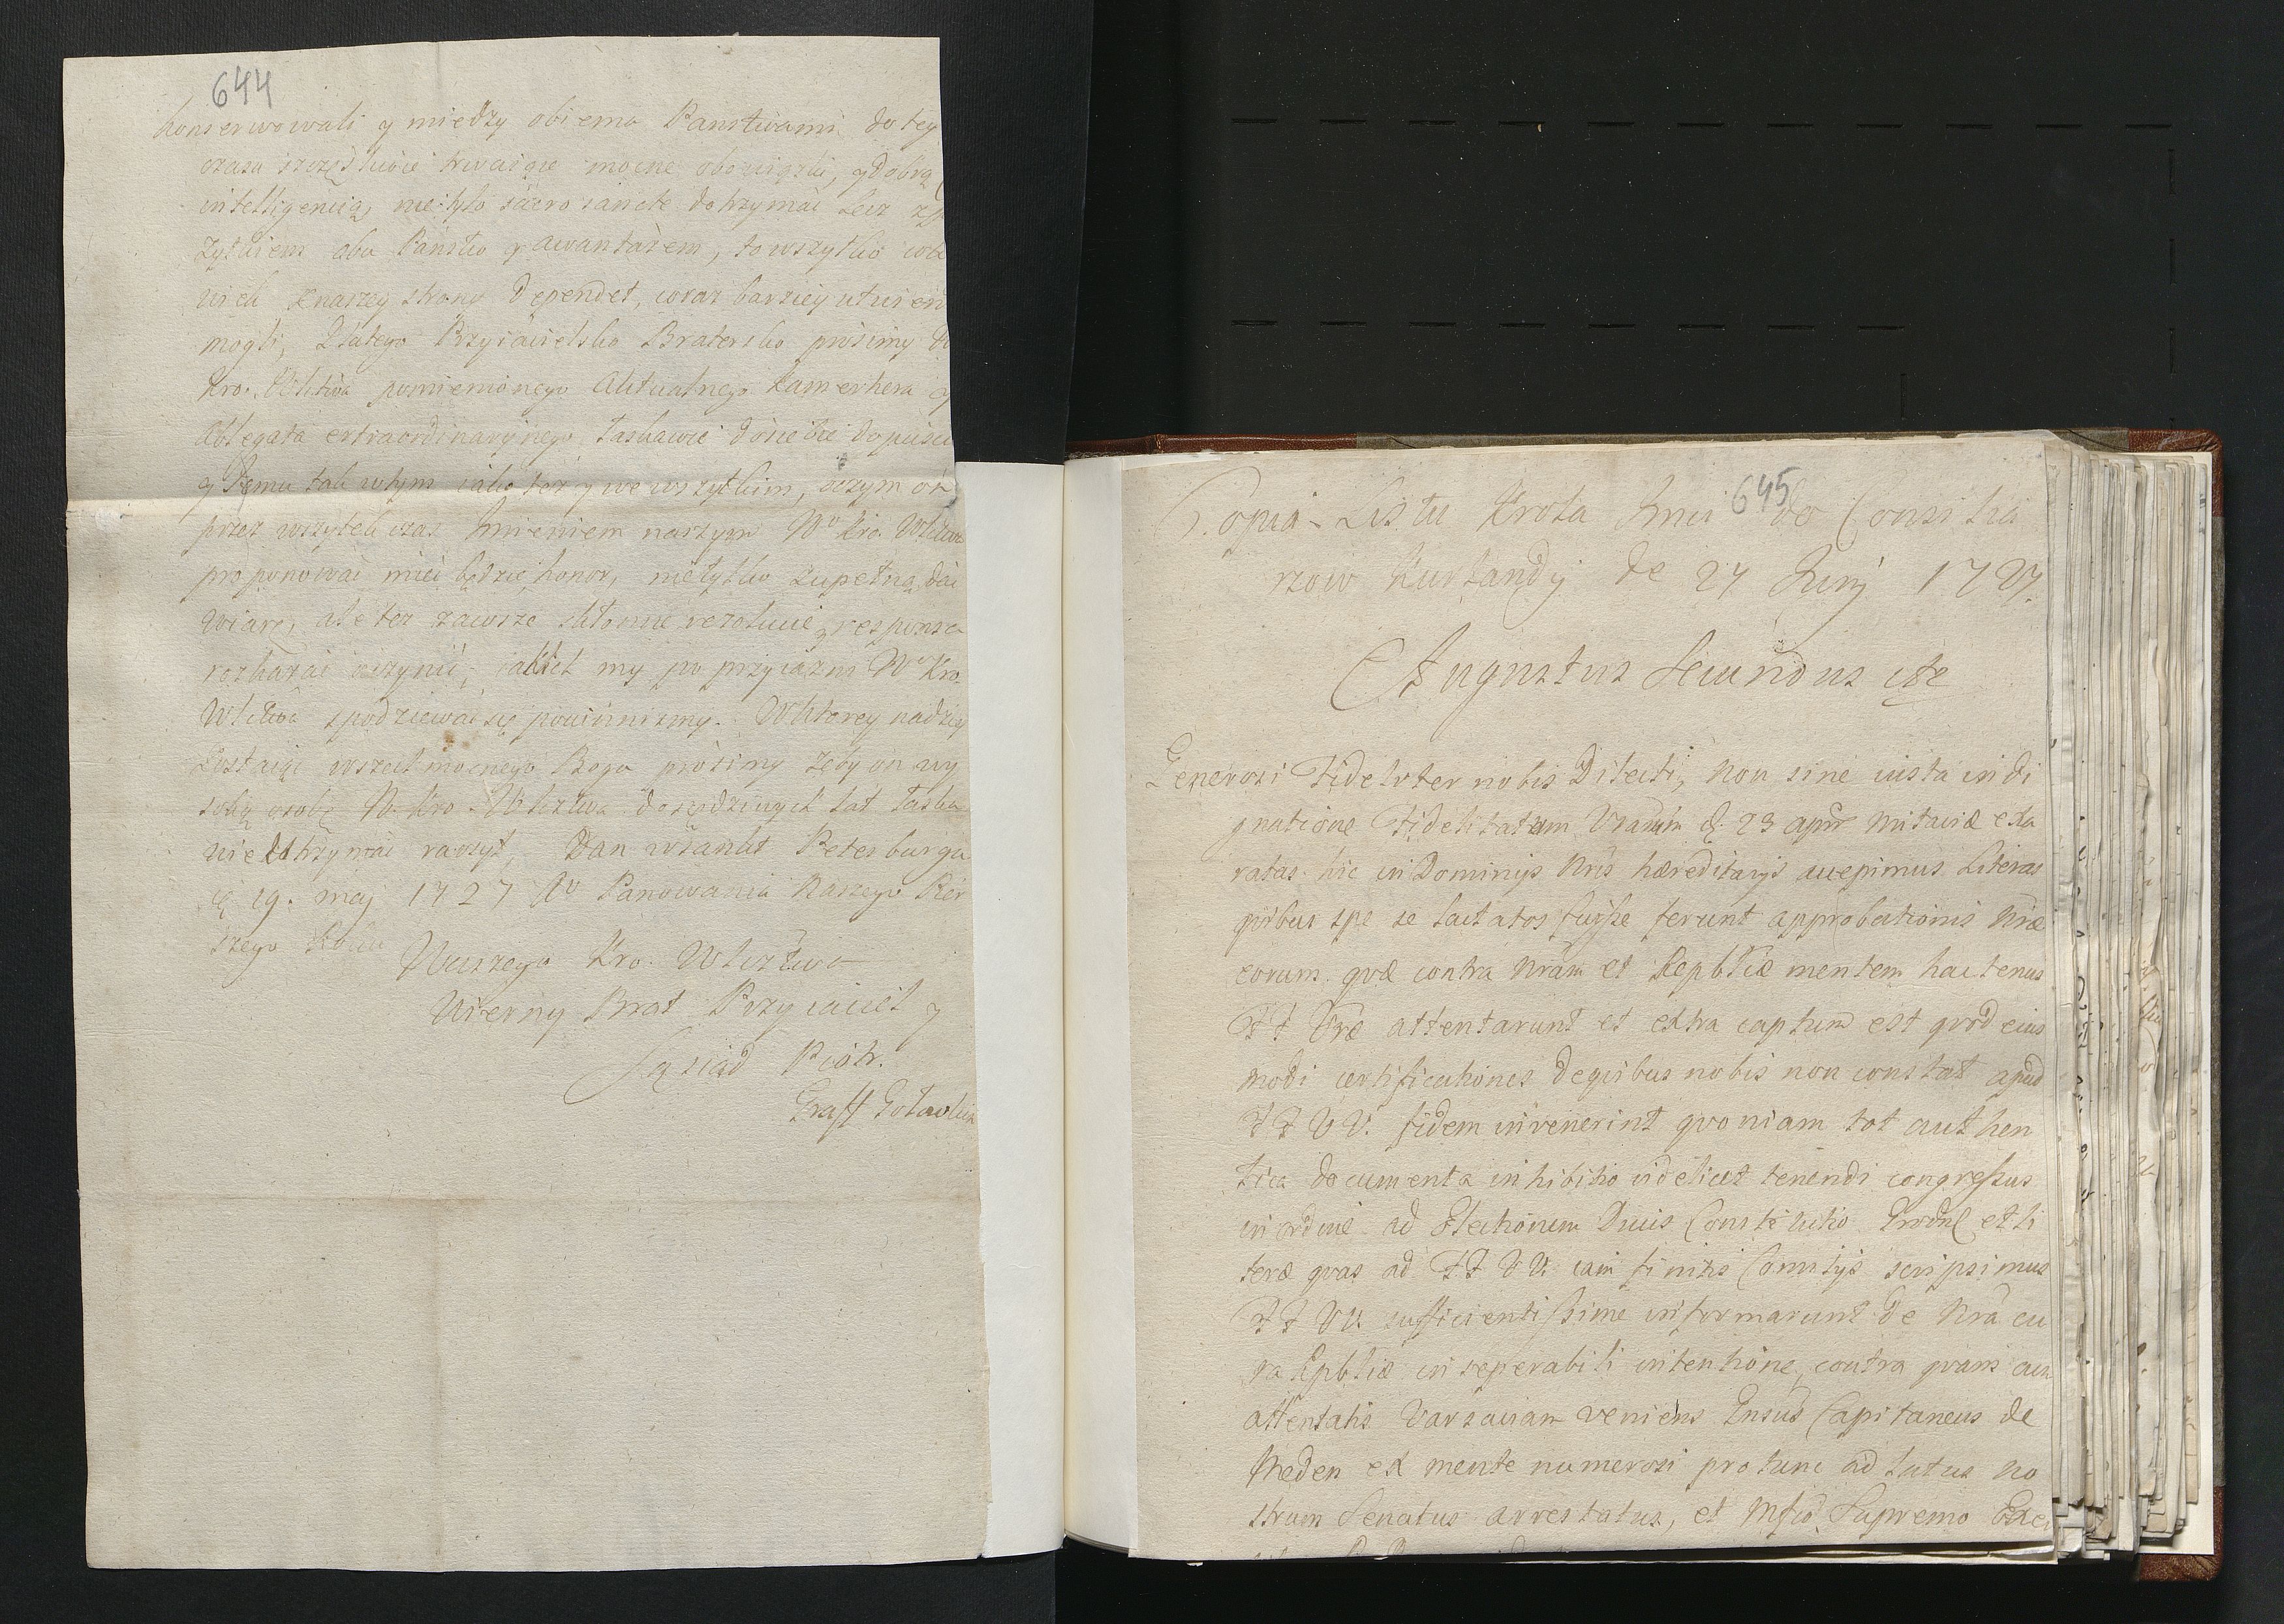 644
konserwowali y między obiema Panstwami do tey
czasu szczęsliwie trwaiące mocne obowiązki, y dobrą
intelligencią, nie tylo sacrosancte dotrzymac Lecz z
zytkiem obu Panstw y awantażem, to wszytko
wiek z naszey strony dependet, coraz barziey utwier
mogli, Dlatego Przyiacielsko Bratersko prosimy
Kro. Wltwa pomienionego Aktualnego Kamerhera y
Ablegata extraordinaryinego łaskawie do siebie dopuscic
y Jemu tak w tym iako tez y we wszytkim, o czym on
przez wszytek czas Imieniem naszym Wu Kro. Wltwu
proponowac miec będzie honor, nie tylko zupełną dac
wiarę, ale tez zawsze skłonne rezolucie y responsa
rozkazac uczynic, iakich my po przyiazni Wu Kro.
Wltwa spodziewac się powinnismy. W ktorey nadziey
Zostaiąc wszechmocnego Boga prosimy żeby on wy
soką osobę W. Kro. Wltwa do sędziwych lat łaska
wie utrzymac raczył, Dan w Sankt Petersburgu
d. 19. maj 1727 Ao Panowania Naszego Pier
szego Roku
Waszego Kro. Wltwa
Wierny Brat Przyiaciel y
Sąsiad Piotr.
Graff Gołowkin
645
Copia Listu Krola Jmci do Consilia
rzow Kurlandij de 27 Junij 1727.
Augustus Secundus etc
Generosi Fideliter nobis Dilecti, Non sine iusta indi
gnatione Fidelitatum Vrarum d. 23 apr Mitaviæ exa
ratas hic in Dominijs Nris hæreditarijs accepimus Literas
qvibus spe se lactatos fuisse ferunt approbationis Nræ
eorum qvæ contra Nram et Reipblicæ mentem hactenus
FF Vræ attentarunt et extra captum est qvod eius
modi certificationes de qvibus nobis non constat apud
FF VV. fidem invenerint qvoniam tot authen
tica documenta inhibitio videlicet tenendi congressus
in ordine ad Electionem Ducis Constitutio Grodn. et li
teræ qvas ad FF VV. iam finitis Comitijs scripsimus
FF VV. sufficientissime informarunt de Nra cu
ra Rpblicæ inseperabili intentione, contra qvam cum
attentatis Varsaviam veniens Gnsus Capitaneus de
Meden ex mente numerosi pro tunc ad latus no
strum Senatus arrestatus, et Mfco Supremo Exer